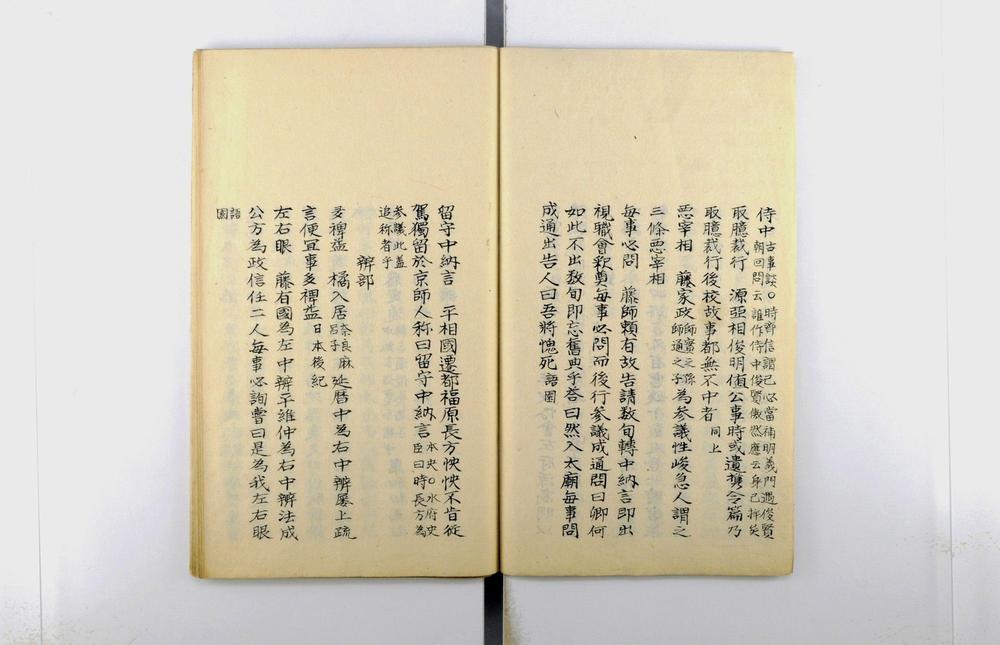 侍中古事談○時爵信謂己必當補明義門遇俊賢朝回問云誰作侍中俊賢傲然應云身已拝矣
取臆裁行　源亞相俊明値公事時或遺携令篇乃
取臆裁行後校故事都無不中者同上
悪宰相　藤家政師實之孫師通之子為参議性峻急人謂之
三條悪宰相
每事必問　藤師頼有故告請数旬轉中納言即出
視職會釈奠每事必問而後行参議成通問曰卿何
如此不出数旬即忘舊典乎答曰然入太廟每事問
成通出告人曰吾將愧死語園
留守中納言　平相國遷都福原長方怏怏不肯從
駕獨留於京師人称曰留守中納言本史○水府史臣曰時長方為
参議此蓋追称者乎
辨部
多裨益　橘入居奈良麻呂子延暦中為右中辨屡上疏
言便宜事多裨益日本後紀
左右眼　藤有國為左中辨平維仲為右中辨法成
公方為政信任二人每事必詢嘗曰是為我左右眼
語園